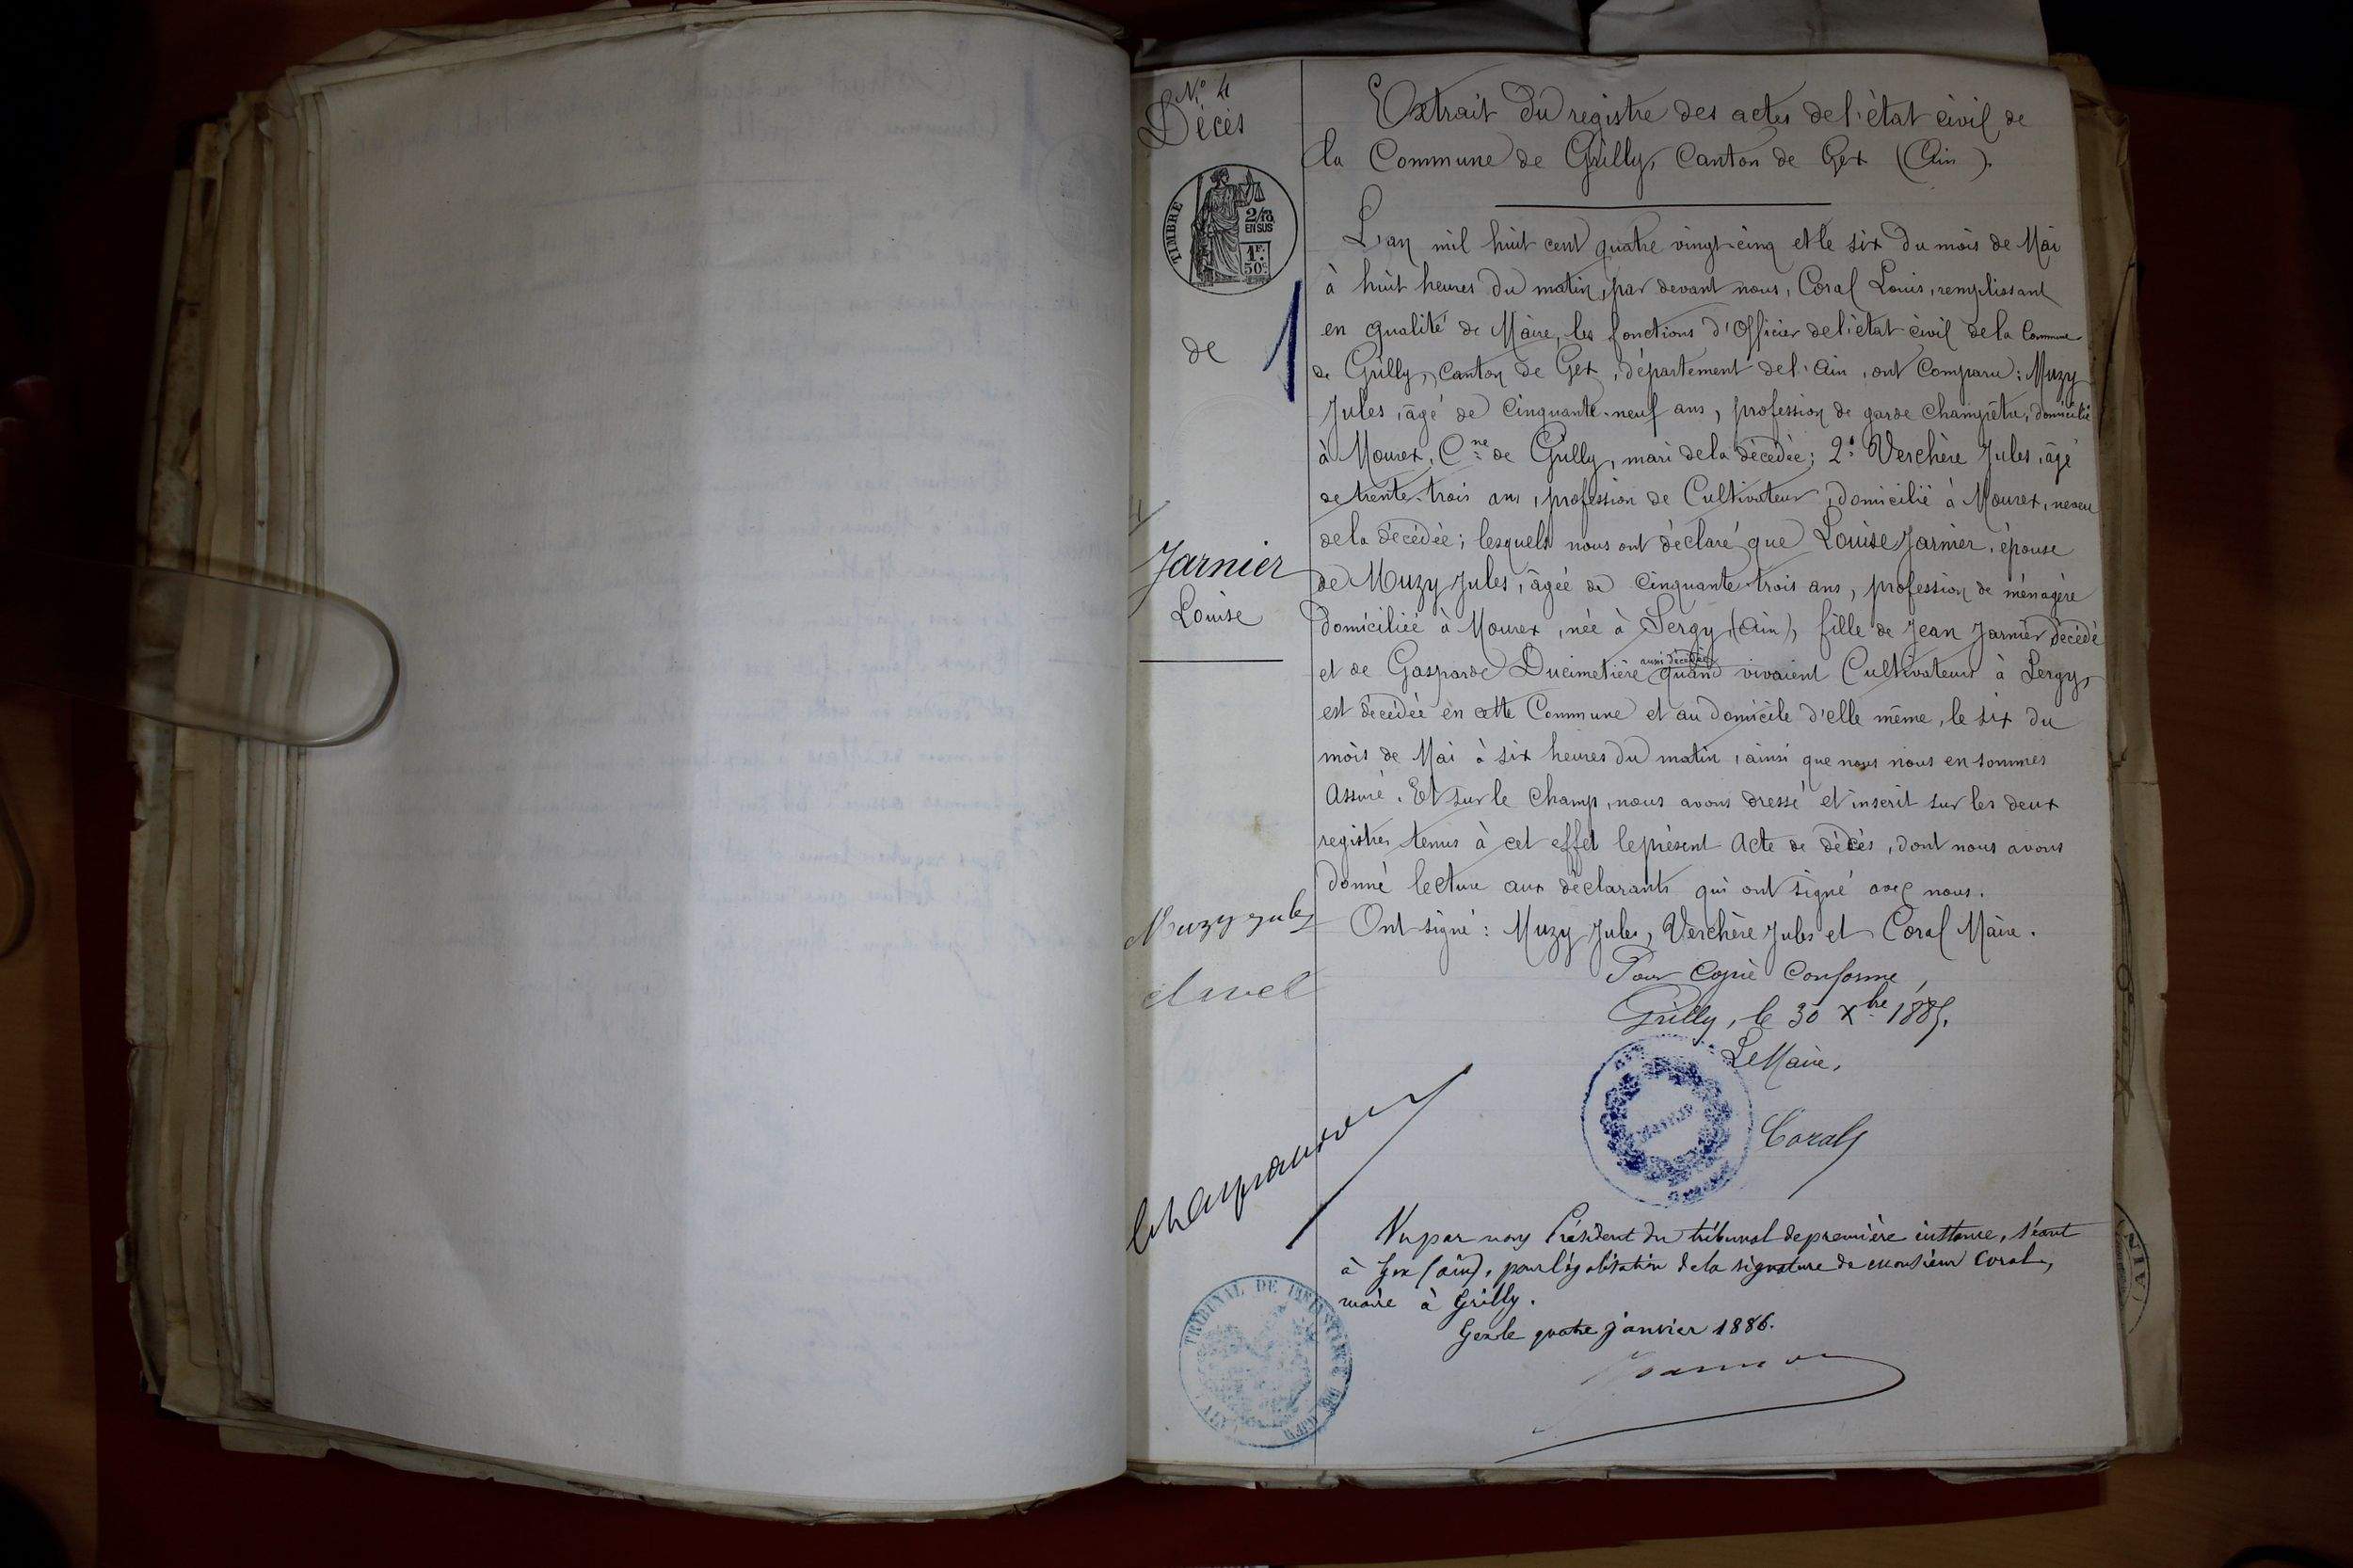 N° 4
Décès
TIMBRE
2/10
EN SUS
1F.
50c
de
1
Jarnier
Louise
Muzy jules
Extrait du registre des actes de l'état civil de
la Commune de Grilly, Canton de Gex (Ain).
L'an mil huit cent quatre vingt-cinq et le six du mois de Mai
à huit heures du matin, par devant nous, Coral Louis, remplissant
en qualité de Maire, les fonctions d'Officier de l'état civil de la Commune
de Grilly, Canton de Gex, département de l'Ain, ont Comparu : Muzy
Jules, âgé de Cinquante-neuf ans, profession de garde Champêtre, domicilié
à Mourex, Cne de Grilly, mari de la décédée ; 2° Verchère Jules, âgé
de trente-trois ans, profession de Cultivateur, domicilié à Mourex, neveu
de la décédée ; lesquels nous ont déclaré que Louise Jarnier, épouse
de Muzy Jules, âgée de Cinquante trois ans, profession de ménagère
domiciliée à Mourex, née à Sergy (Ain), fille de Jean Jarnier décédé
et de Gasparde Ducimetière aussi décédée quand vivaient Cultivateurs à Sergy,
est décédée en cette Commune et au domicile d'elle même, le six du
mois de Mai à six heures du matin, ainsi que nous nous en sommes
Assuré. Et sur le Champ, nous avons dressé et inscrit sur les deux
registres tenus à cet effet le présent Acte de décès, dont nous avons
donné lecture aux déclarants qui ont signé avec nous.
Ont signé : Muzy Jules, Verchère Jules et Coral Maire.
Pour Copie Conforme,
Grilly, le 30 Xbre 1885.
Le Maire,
Coral
Vu par nous Président du tribunal de première instance, séant
à Gex (ain), pour légalisation de la signature de monsieur Coral,
maire à Grilly.
Gex le quatre janvier 1886.
TRIBUNAL DE 1RE INSTANCE DE GEX
(AIN)